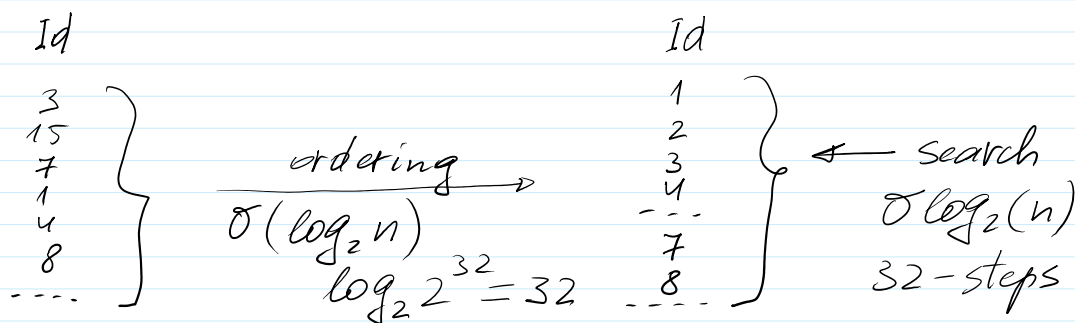 Id
3
15
7
1
4
8
----
ordering
O(log₂ n)
log₂ 2³² = 32
Id
1
2
3
4
----
7
8
----
search
O log₂(n)
32-steps